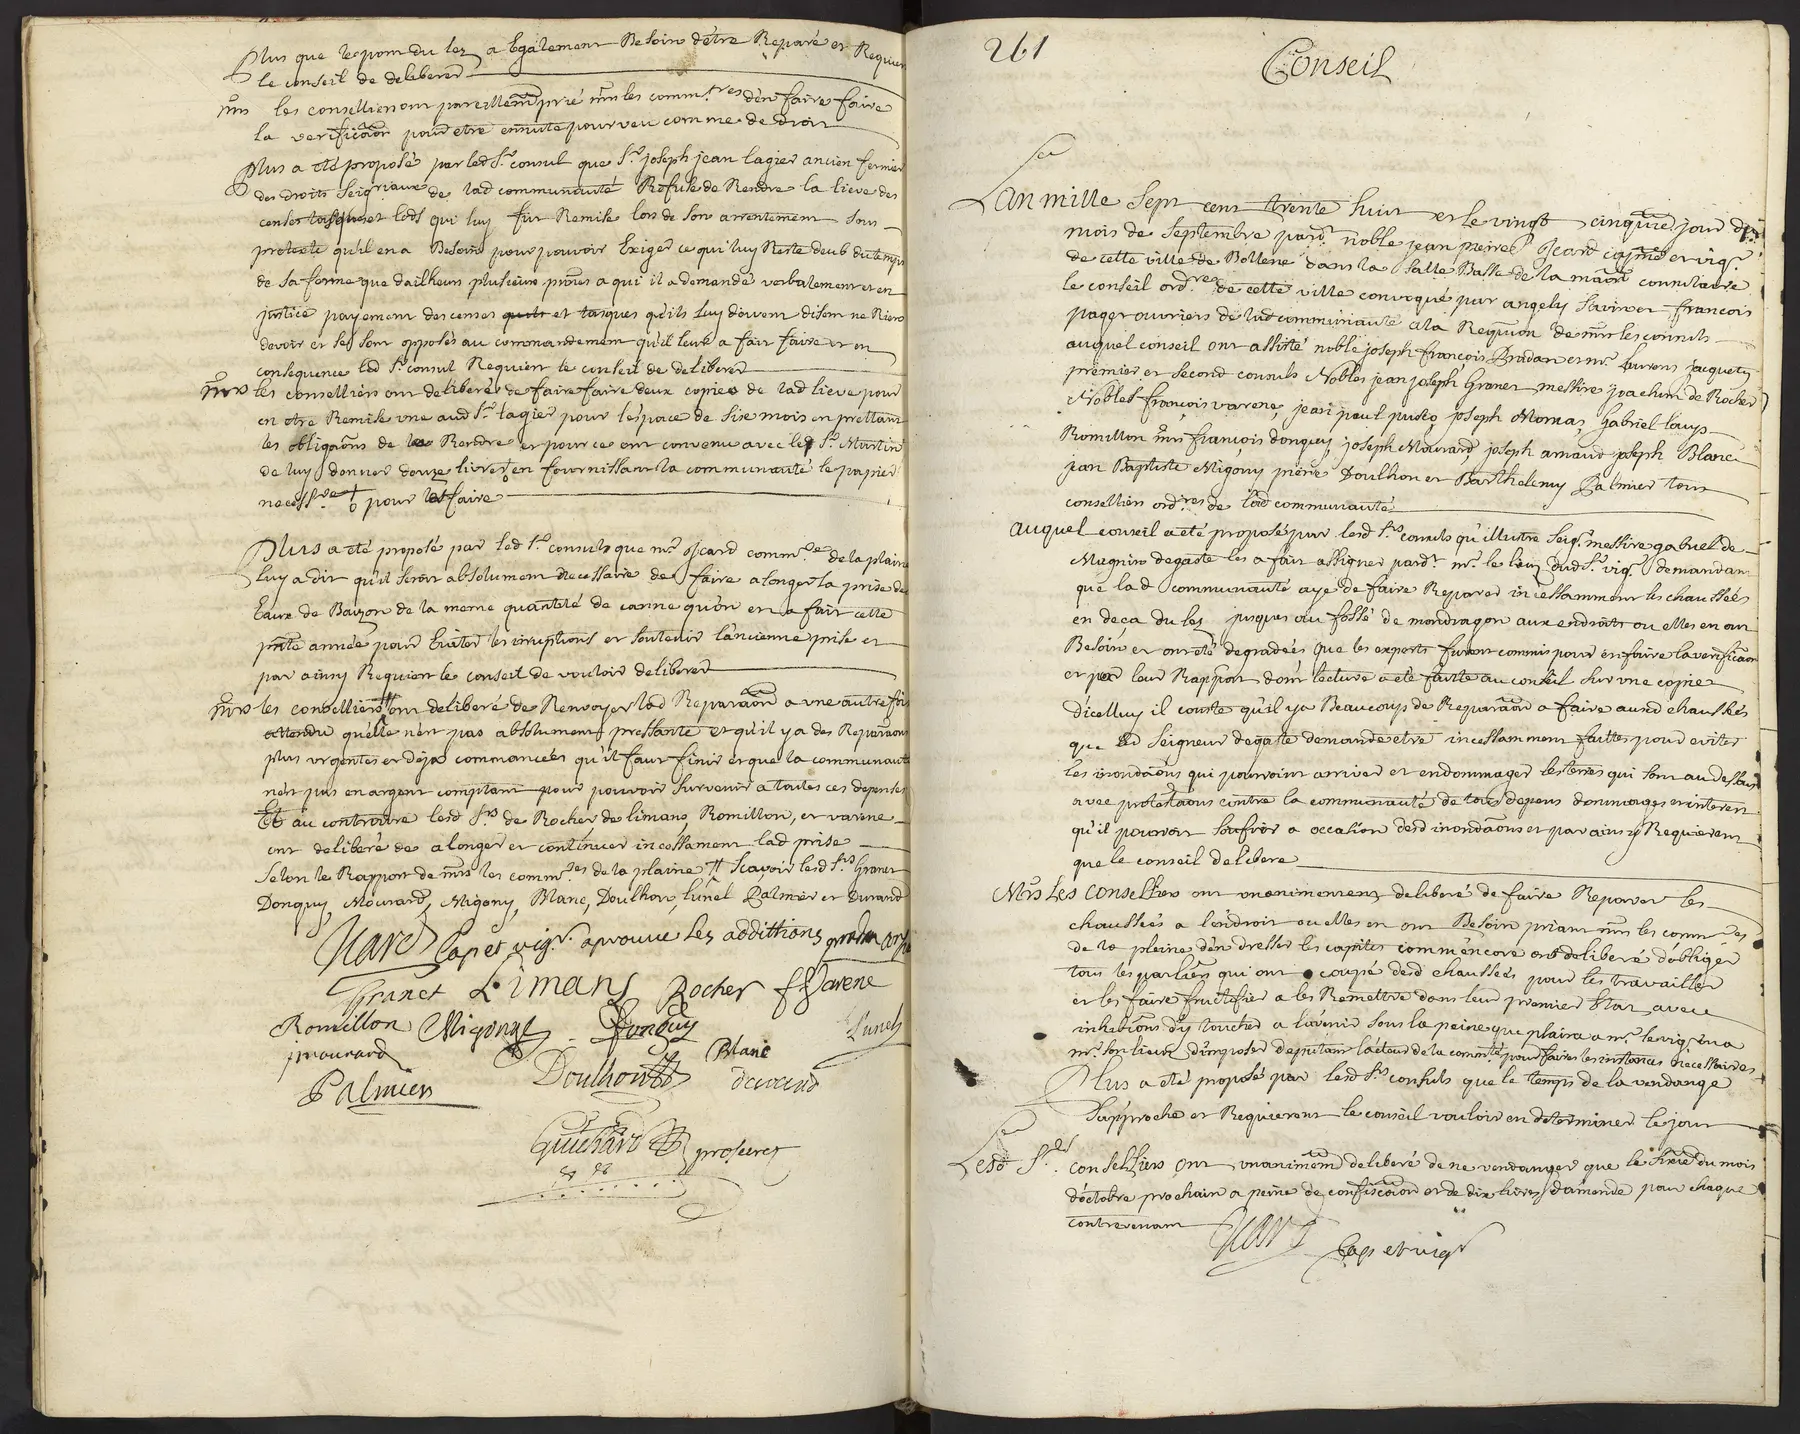 Plus que le pont du lez a Egalement Besoin detre Reparé et Requiert
le conseil de deliberer
mrs les conselliers ont pareillemt prié mrs les commres d'en faire faire
la veriffication pour etre ensuite pourveu comme de droit
Plus a eté proposé par led Sr consul que Sr joseph jean lagier ancien fermier
des droits Seigriaux de lad communauté Refuse de Rendre la lieve des
censes tasques et lods qui luy fut Remise lors de son arrentement sous
protexte qu'il en a Besoin pour pouvoir Exiger ce qui luy Reste deub du temps
de sa ferme que dailheurs plusieurs a qui il a demandé verbalement et en
justice payement des censes et tasques qu'ils luy doivent disent ne Rien
devoir et se sont opposés au commandement qu'il leur a fait faire et en
consequence led Sr consul Requiert le conseil de deliberer
Mrs les conselliers ont deliberé de faire faire deux copies de lad lieve pour
en etre Remise une aud Sr lagier pour l'espace de six mois en prettant
les obligaõns de la Rendre et pour ce ont convenu avec led Sr Martin
de luy donner douze livres en fournissant la communauté le papier
necessre pour les faire
Plus a eté proposé par led Sr consuls que mr jcard commre de la plaine
luy a dit qu'il seroit absolument necessaire de faire alonger la prise des
Eaux de Bauzon de la meme quantité de canne qu'on en a fait cette
pnte année pour Eviter les irruptions et soutenir l'ancienne prise et
par ainsy Requiert le conseil de vouloir deliberer
Mrs les conselliers ont deliberé de Renvoyer lad Reparaõn a une autre fois
attendu qu'elle n'est pas absolument pressante et qu'il y a des Reparaõns
plus urgentes et deja commancées qu'il faut finir et que la communauté
n'est pas en argent comptant pour pouvoir survenir a toutes ces depenses
Et au contraire lesd Srs de Rocher, de limans, Romillon, et varene
ont deliberé de alonger et continuer incessament lad prise
selon le Rapport de mrs les commres de la plaine // scavoir lesd Srs Granet
Donquy, Mourard, Migony, Blanc, Doulhon, lunel Palmier et Durand
Jcard Cap et vigr aprouve les addittions
Granet Limans Rocher Varene
Romillon Migony Donquy Lunel
jmourard Doulhon Blanc
Palmier durand
Guichard prosecret
261 Conseil
Lan mille Sept cent trente huit et le vingt cinquieme jour du
mois de Septembre pardt noble jean pierre jcard capne et vigr
de cette ville de Bollene dans la salle Basse de la maison consulaire
le conseil ordre de cette ville convoqué par angely savinet francois
pager ouvriers de lad communauté a la Requion de mrs les consuls
auquel conseil ont assisté noble joseph françois Pradan et mr laurens jacquety
premier et second consuls Nobles jean joseph Granet messire joachim de Rocher
Nobles françois varene, jean paul joseph gabriel louys
Romillon mrs françois donquy, joseph Mourard, joseph arnaud joseph Blanc
jean Baptiste Migony pierre Doulhon et Barthelemy Palmier tous
conselliers ordres de lad communauté
Auquel conseil a eté proposé par lesd Srs consuls qu'illustre Seigr messire gabriel de
degaste les a fait assigner pardt mr le lieut dud Sr vigr demandant
que lad communauté aye de faire Reparer incessamment les chaussées
en deça du lez jusques au fossé de mondragon aux endroits ou elles en ont
Besoin et ont eté degradées que les experts furent commis pour en faire la veriffication
et par leur Rapport dont lecture a eté faitte au conseil sur une copie
d'icelluy il conste qu'il y a Beaucoup de Reparaõn a faire ausd chaussées
que led Seigneur degaste demande etre incessamment faittes pour eviter
les inondaõns qui pourroint arriver et endommager les terres qui sont au dessous
avec protestaõns contre la communauté de tous depens dommages et interets
qu'il pourroit souffrir a occasion desd inondaõns et par ainsy Requierent
que le conseil delibere
Mrs Les conselliers ont unanimement deliberé de faire Reparer les
chaussées a l'endroit ou elles en ont Besoin priant mrs les commres
de la plaine d'en dresser les capites comm'encore ont deliberé d'obliger
tous les parliers qui ont coupé desd chaussées pour les travailler
et les faire fructifier a les Remettre dans leur premier Etat avec
inhibitions d'y toucher a l'avenir sous la peine que plaira a mr le vigr ou a
mr son lieut d'imposer deputant l'acteur de la commté pour faire les instances necessaires
Plus a eté proposé par lesd Srs consuls que le temps de la vendange
s'approche et Requierent le conseil vouloir en determiner le jour
Lesd Srs conselliers ont unanimemt deliberé de ne vendanger que le sixie du mois
d'octobre prochain a peine de confiscation et de dix livres d'amende pour chaque
contrevenant
Jcard Cap et vigr